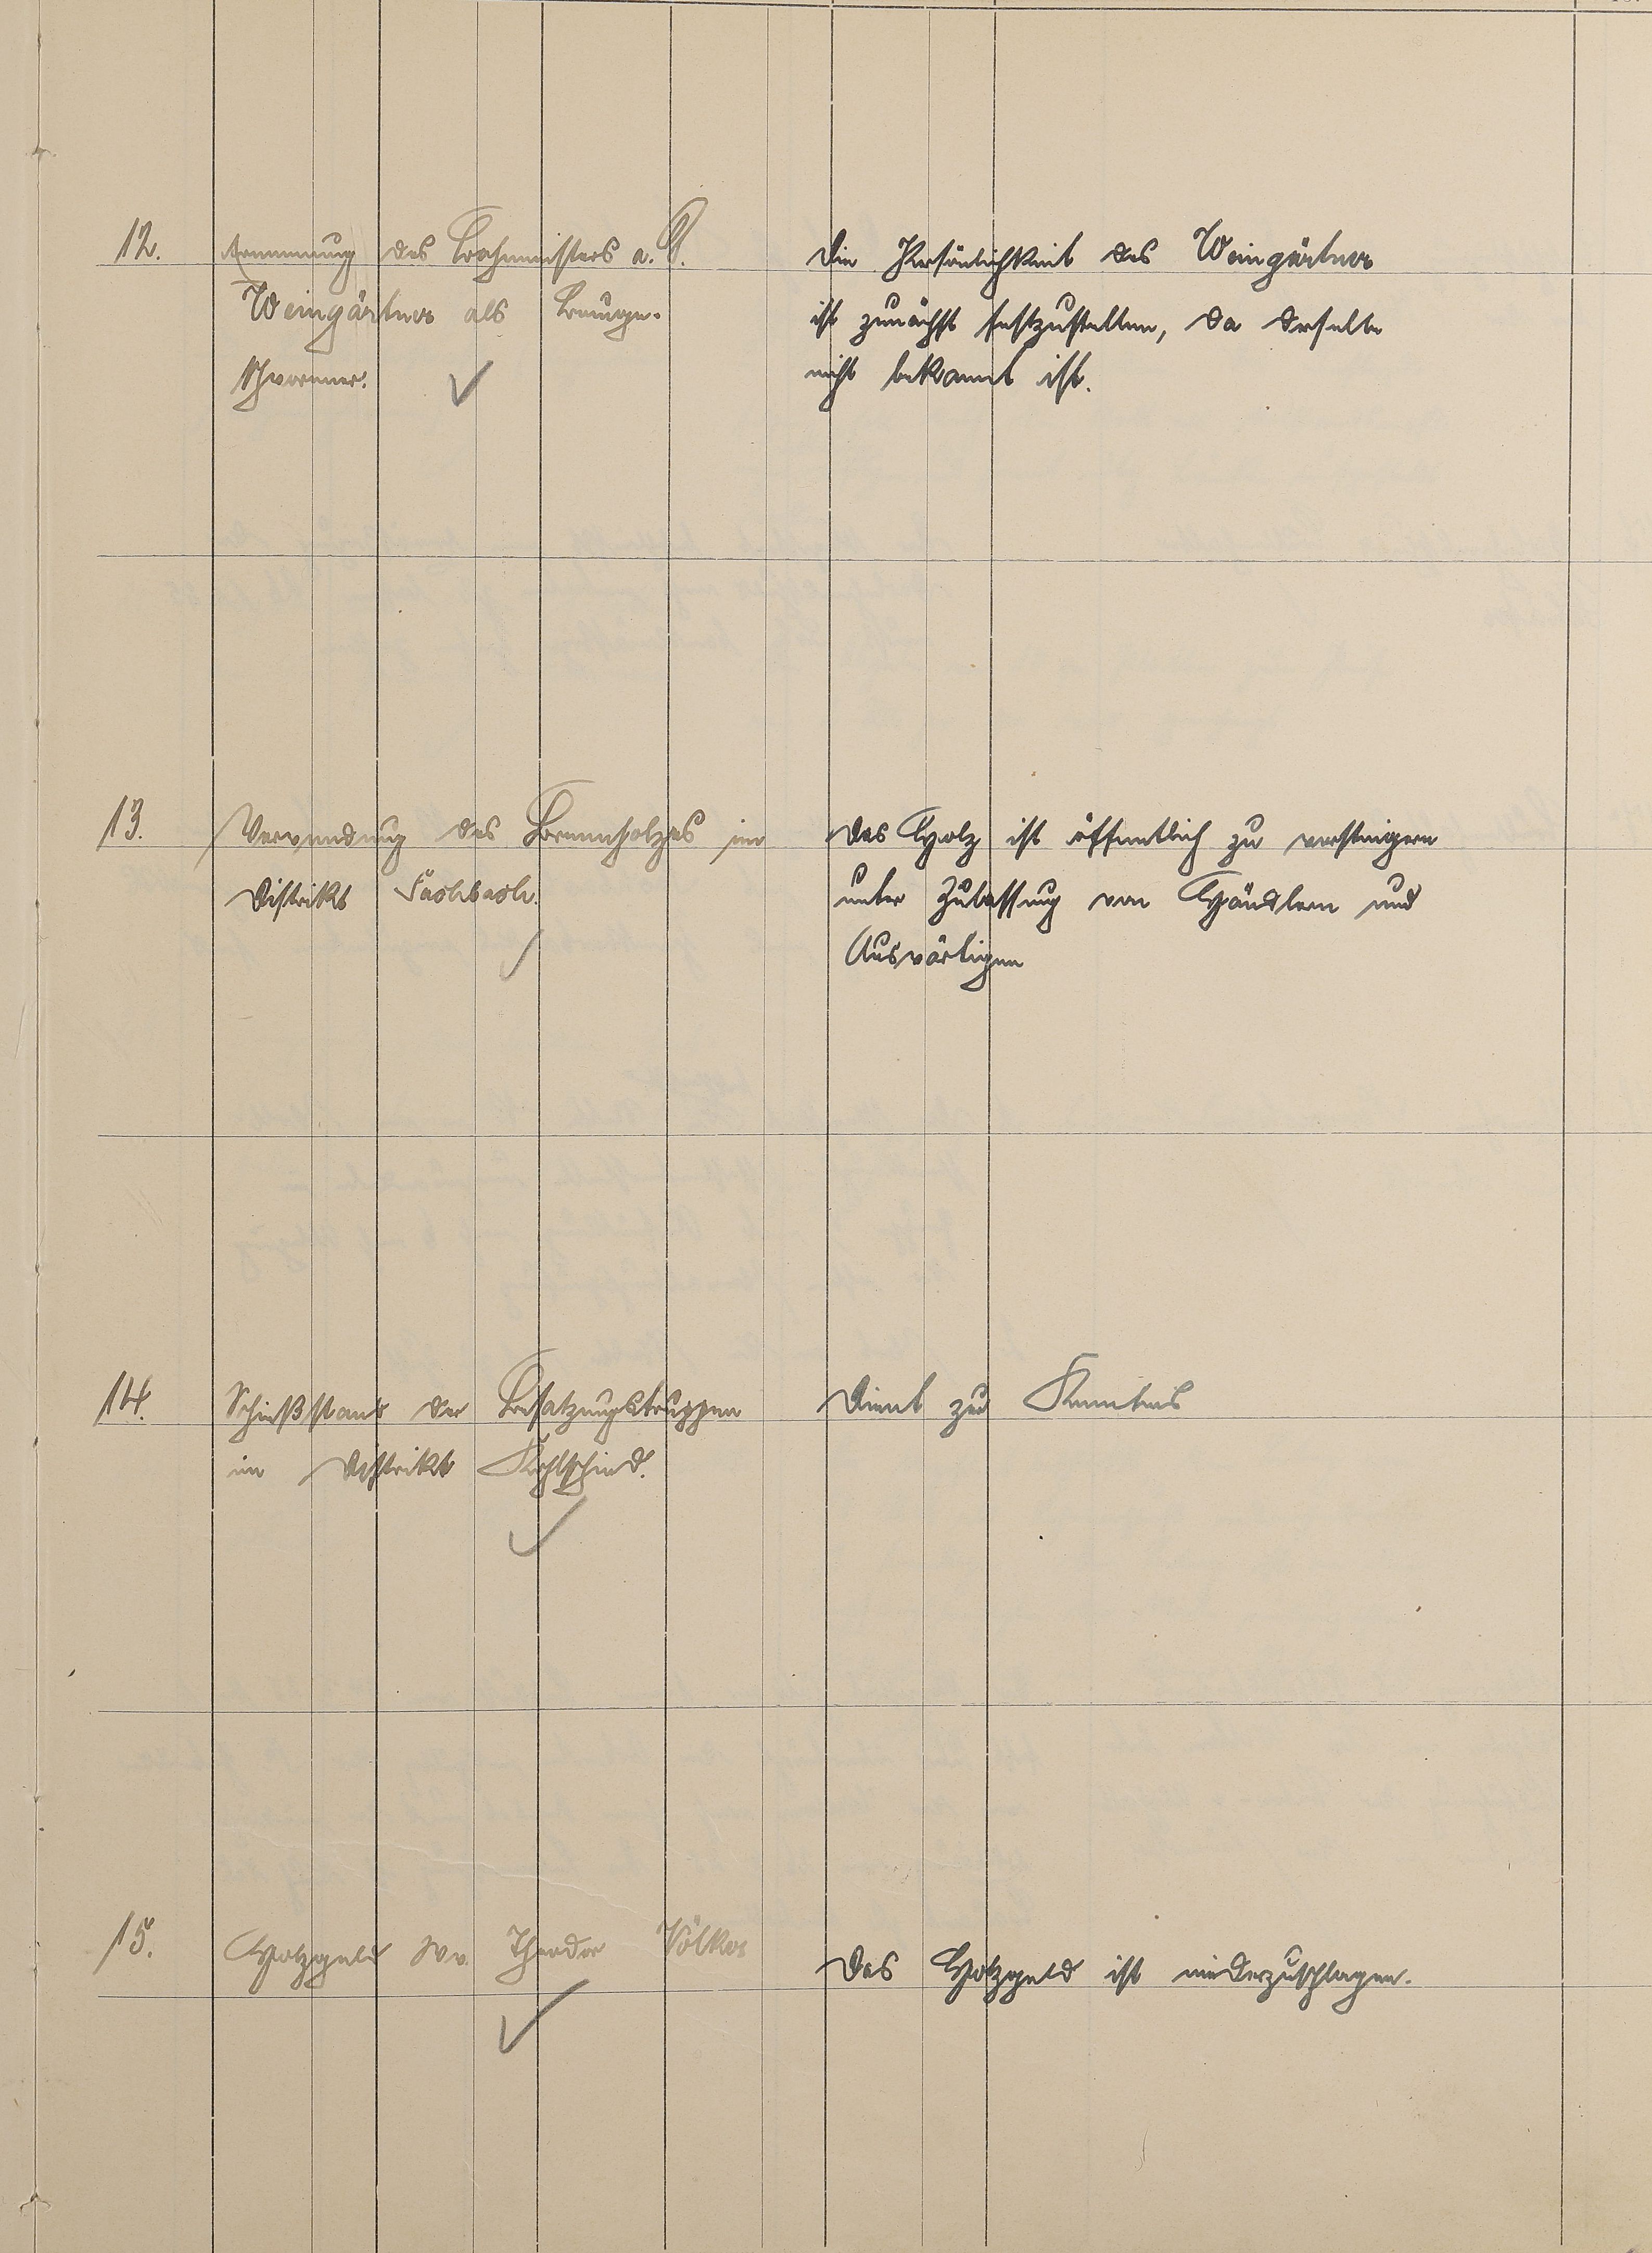 12. Ernennung des Bahnmeisters a. D.
Weingärtner als
Die Persönlichkeit des Weingärtner
ist zunächst festzustellen, da derselbe
nicht bekannt ist.
13. Verwendung des Brennholzes im
Distrikt
Das Holz ist öffentlich zu versteigern
unter Zulassung von Händlern und
Auswärtigen
14. Schießstand der Besatzungstruppen
im Distrikt
Dient zur Kenntnis
15. Holzgeld Ww. Theodor Völker
Das Holzgeld ist niederzuschlagen.